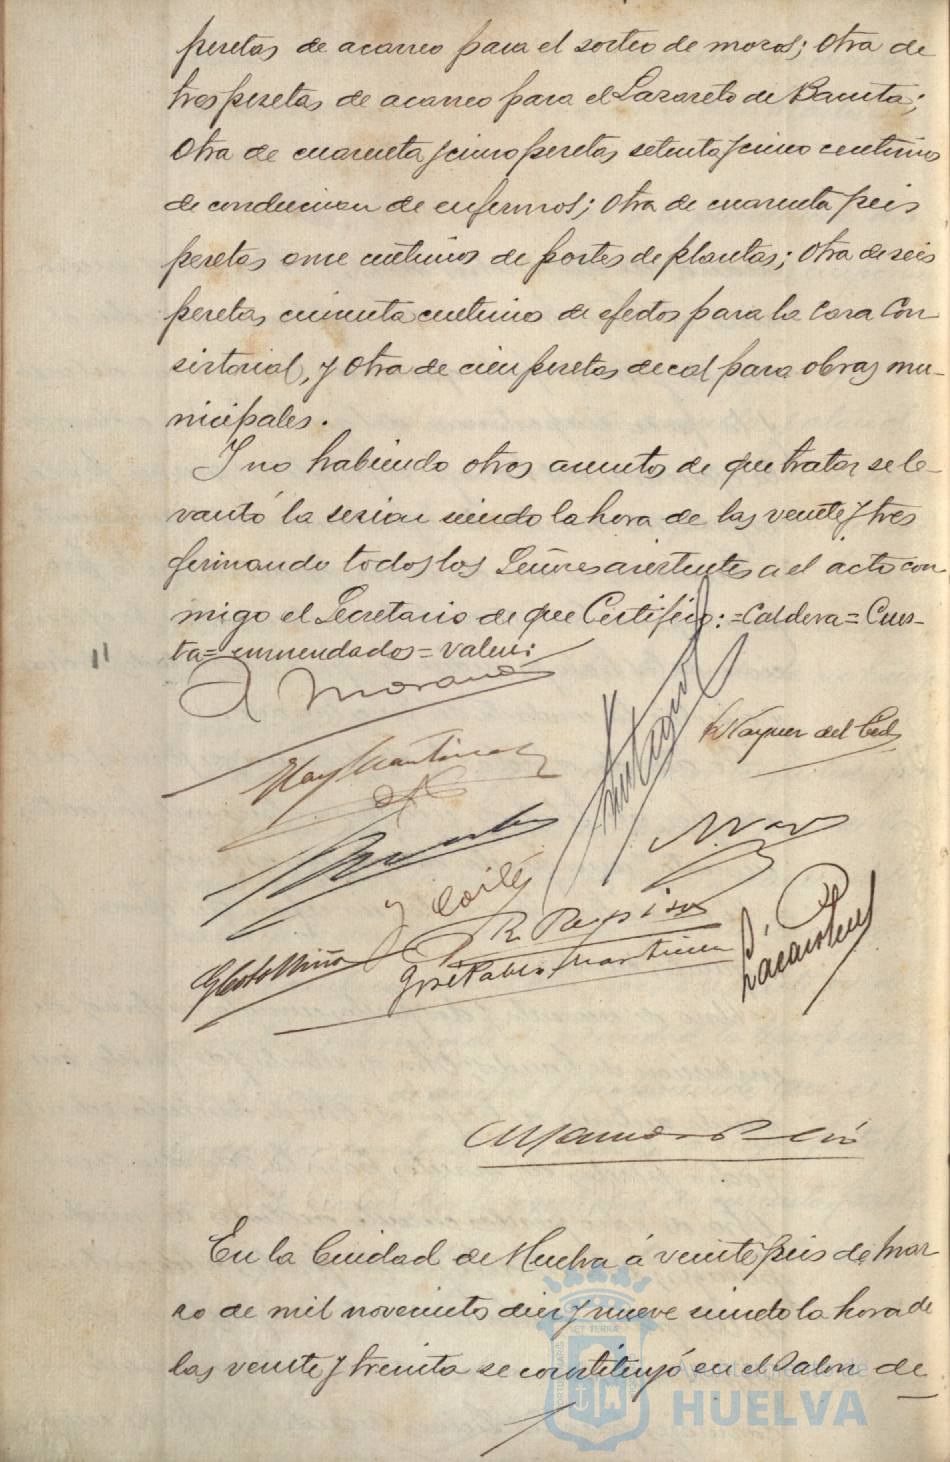 pesetas de acarreo para el sorteo de mozos; Otra de
tres pesetas de acarreo para el Lazareto de Bacuta;
Otra de cuarenta y cinco pesetas setenta y cinco centimos
de conduccion de enfermos; Otra de cuarenta y seis
pesetas once centimos de portes de plantas; Otra de seis
pesetas cincuenta centimos de efectos para la Casa Con
sistorial, y Otra de cien pesetas de cal para obras mu-
nicipales.
Y no habiendo otros asuntos de que tratar se le-
vantó la sesion siendo la hora de las veinte y tres
firmando todos los Señores asistentes a el acto con
migo el Secretario de que Certifico: = Caldera = Cues-
ta = enmendados = valen:
A Morano
Vazquez del Cid
José Pablo Martinez
En la Ciudad de Huelva á veinte y seis de Mar
zo de mil novecientos diez y nueve siendo la hora de
las veinte y treinta se constituyó en el Salon de
Ayuntamiento de
HUELVA